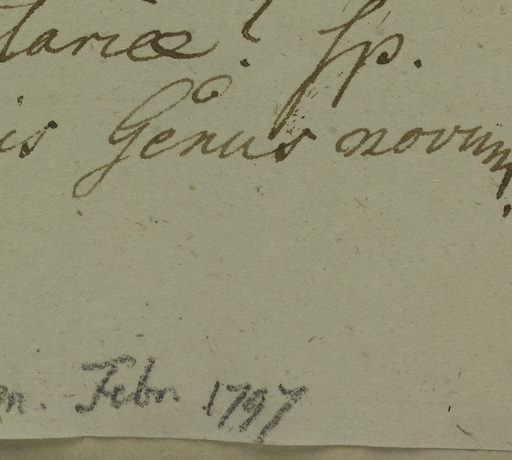 tariæ? sp.
is Genus novum.
m. Febr. 1797